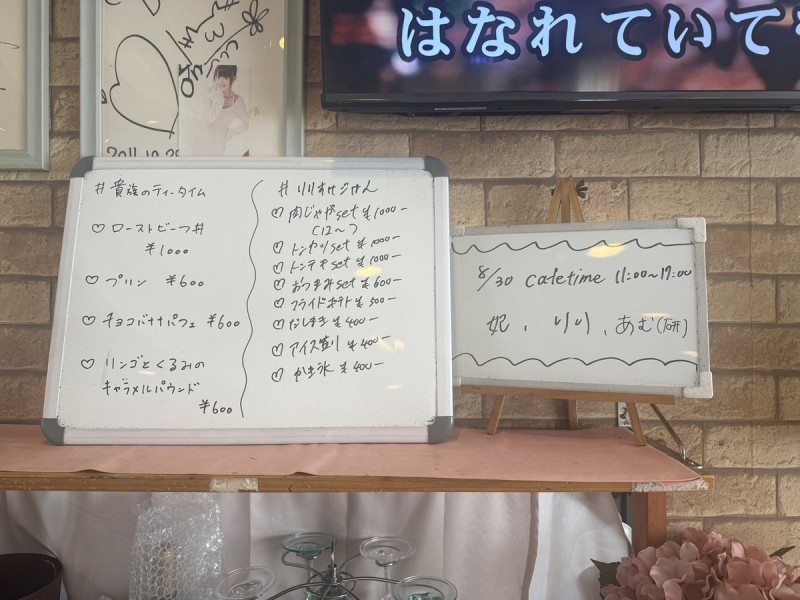 はなれていて
2011.10.29
# 貴族のティータイム
♡ ローストビーフ丼
¥1000
♡ プリン ¥600
♡ チョコバナナパフェ ¥600
♡ リンゴとくるみの
キャラメルパウンド
¥600
♡ 肉じゃがset ¥1000-
(12〜)
♡ トンカツset ¥1000-
♡ トンテキset ¥1000-
♡ おつまみset ¥600-
♡ フライドポテト ¥500-
♡ だしまき ¥400-
♡ アイス ¥400-
♡ かき氷 ¥400-
8/30 Cafetime 11:00~17:00
妃、りり、あむ(研)